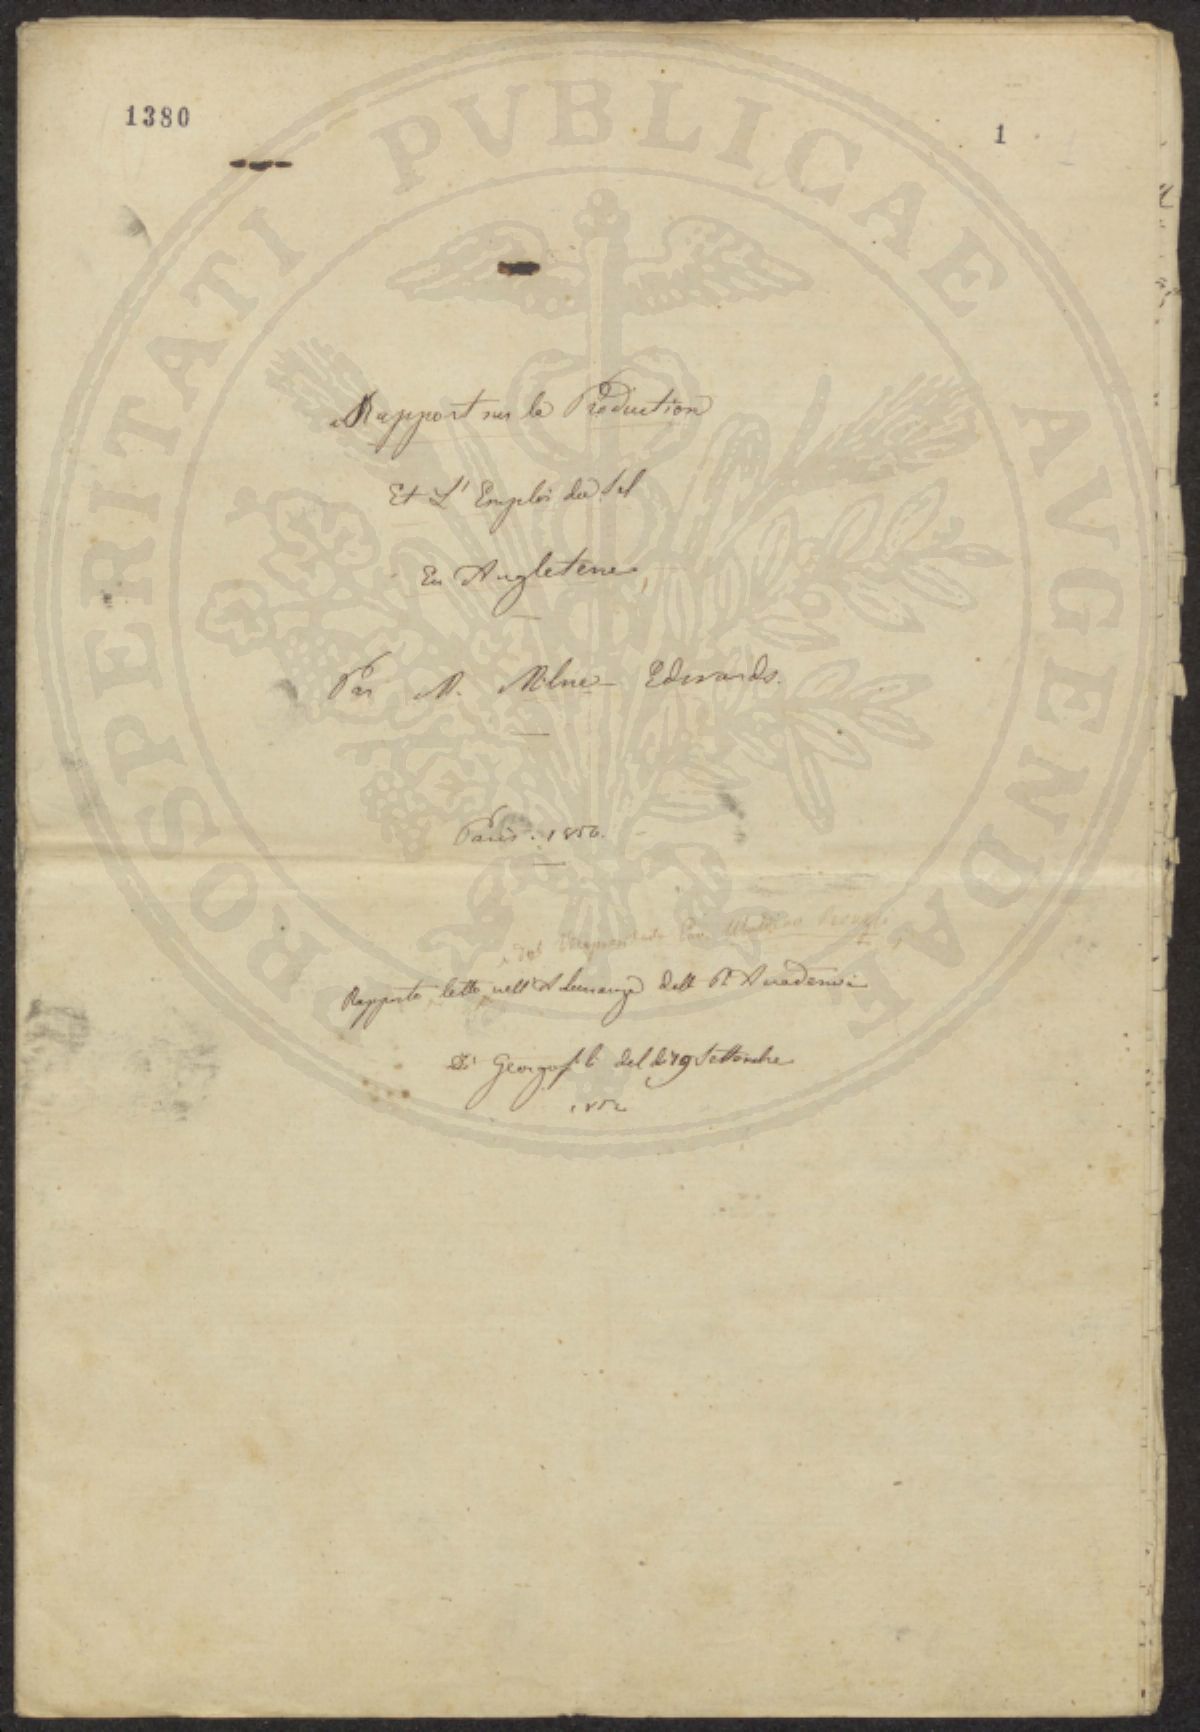 1380
1
PROSPERITATI PVBLICAE AVGENDAE
Rapport sur la Production
Et L' Emploi du Sel
En Angleterre,
Par M. Milne Edwards.
Paris. 1850.
del
Rapporto letto nell'Adunanza della R. Accademia
Dei Georgofili del dì 19 Settembre
1852